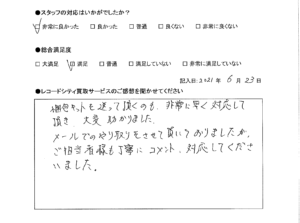 ●スタッフの対応はいかがでしたか?
□非常に良かった □良かった □普通 □良くない □非常に良くない
●総合満足度
□大満足 □満足 □普通 □満足していない □非常に満足していない
記入日: 2021年 6月 23日
●レコードシティ買取サービスのご感想を聞かせてください
梱包キットを送って頂くのも、非常に早く対応して
頂き 大変 助かりました。
メールでのやり取りをさせて貰いておりましたが、
ご担当者様も丁寧に コメント、対応してくださ
いました。